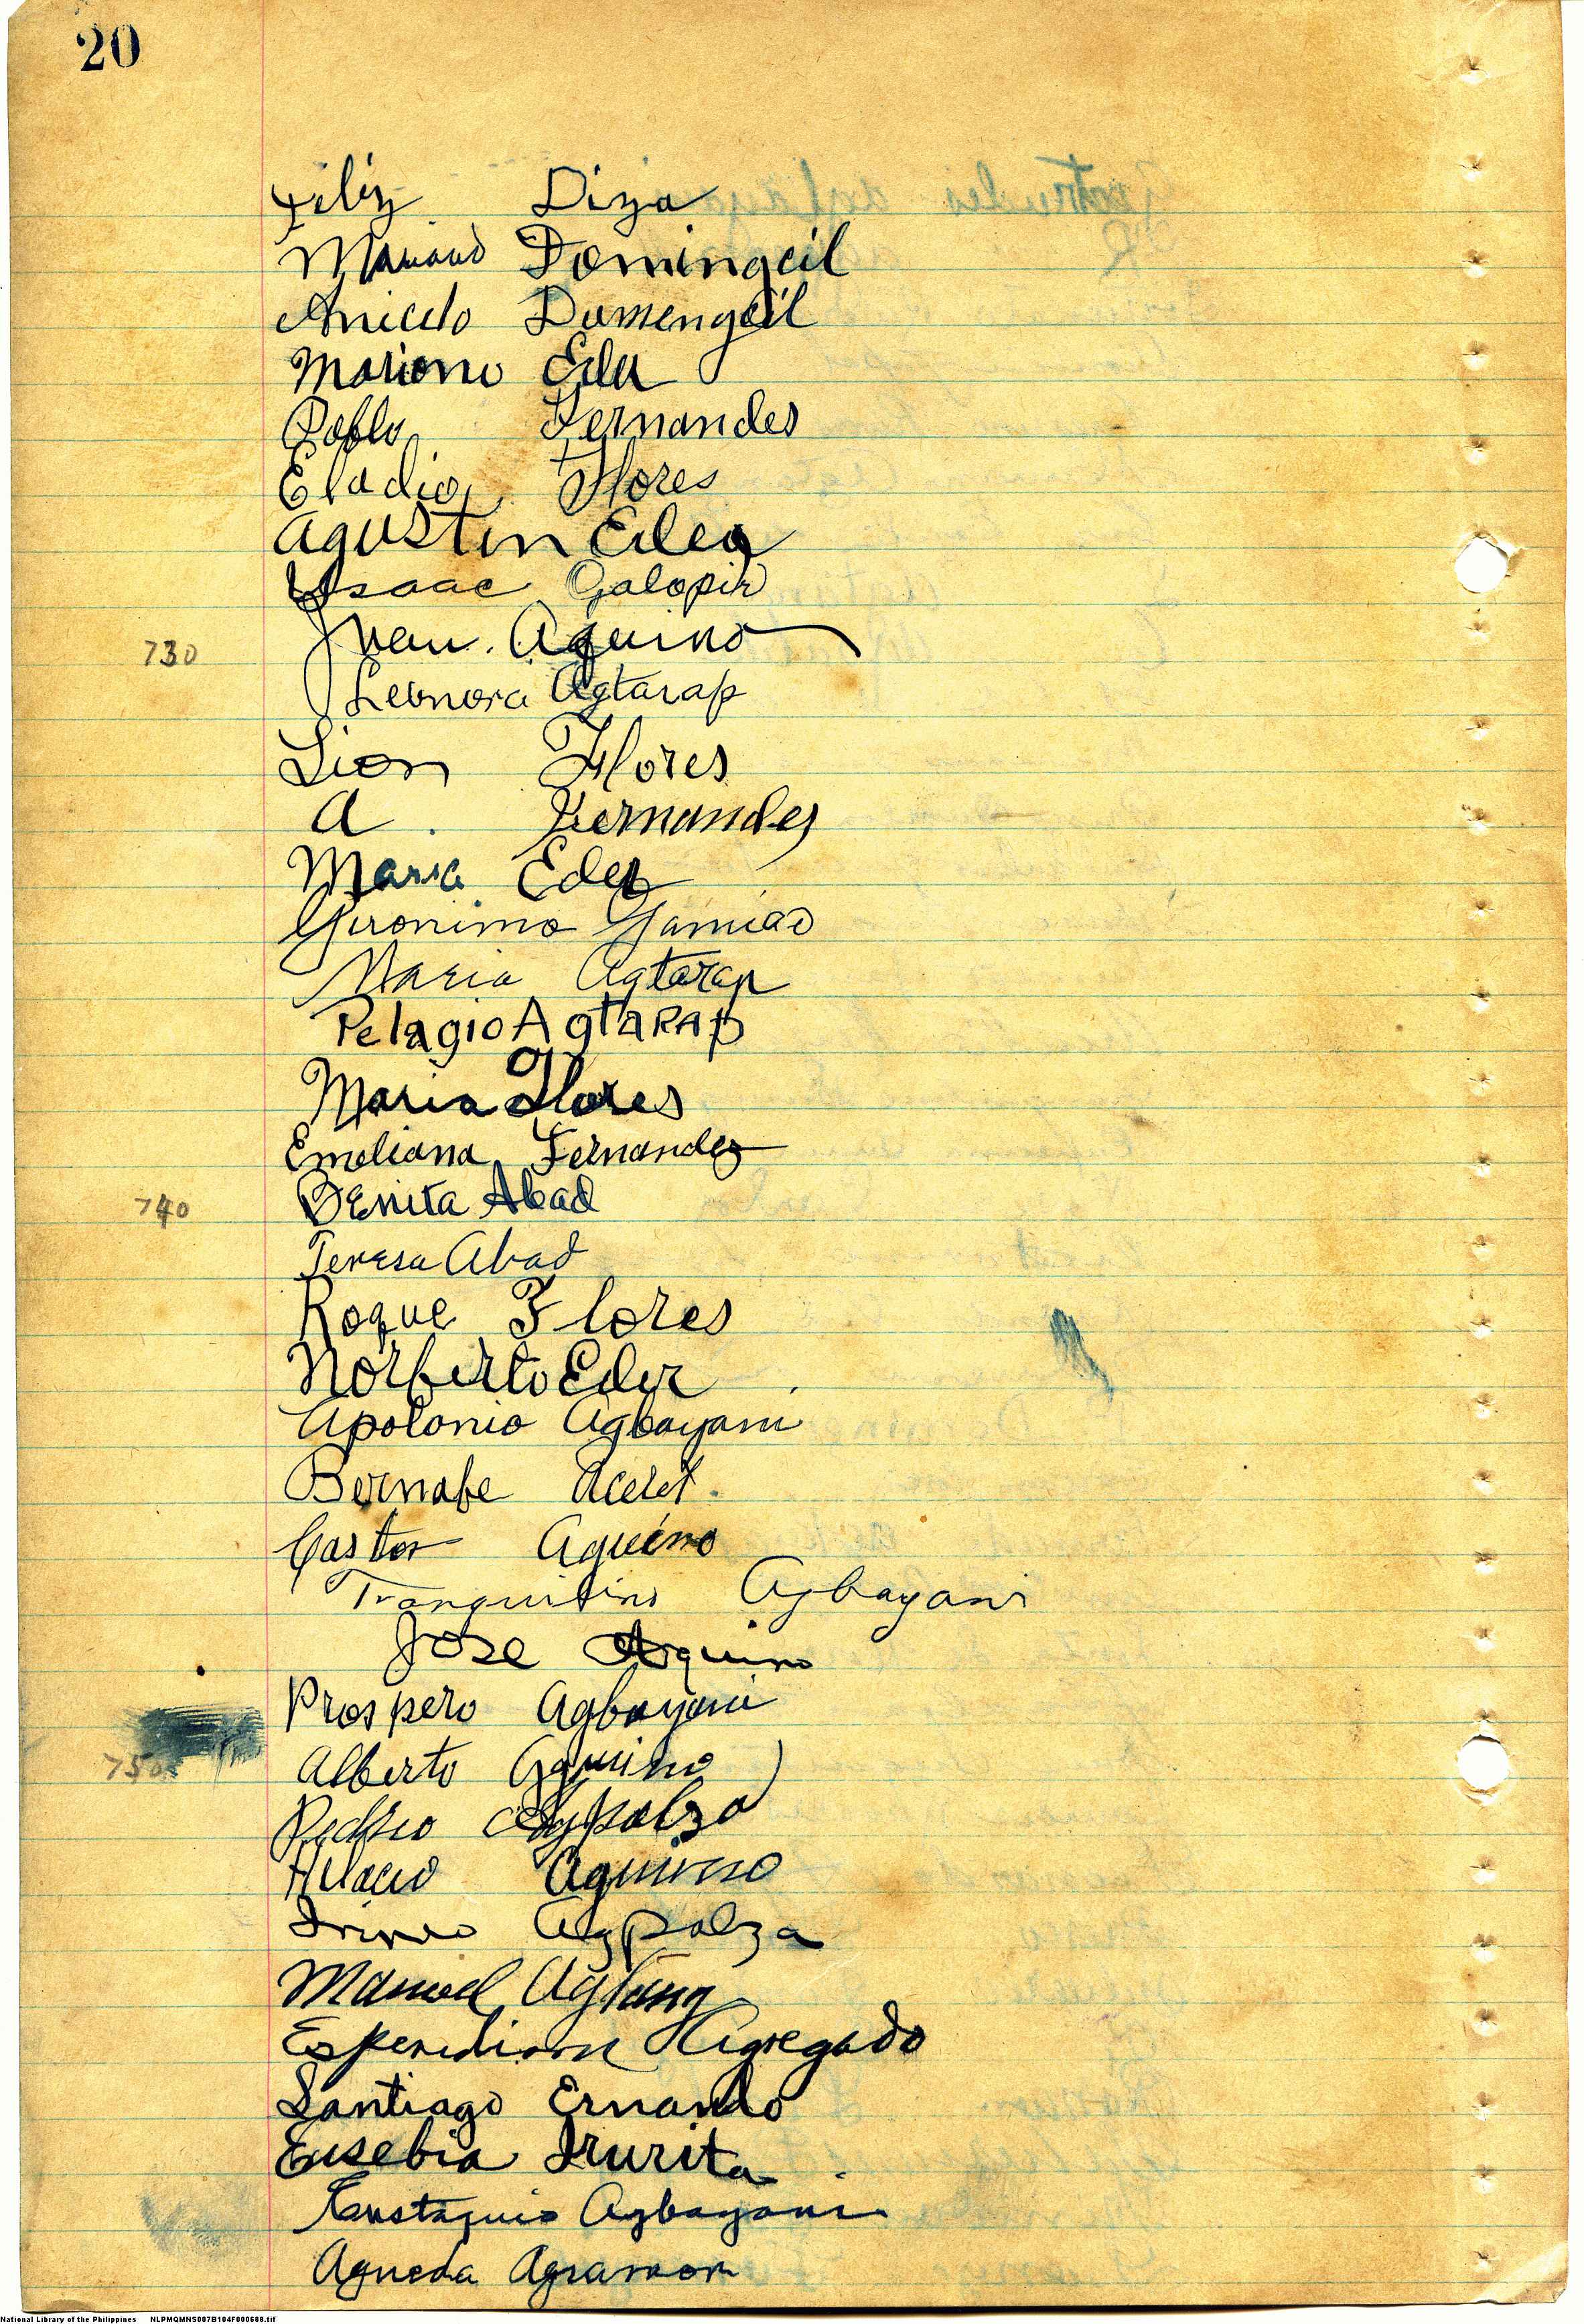 20
Feliz Diza
Mariano Domingcil
Aniceto Domengcil
Mariano Eder
Pablo Fernandes
Eladio Flores
Agustin Eder
Isaac Galopir
730 Juan. Aquino
Leonora Agtarap
Lion Flores
A. Fernandes
Maria Eder
Geronimo Gamiao
Maria Agtarap
Pelagio Agtarap
Maria Flores
Emeliana Fernandez
740 Benita Abad
Teresa Abad
Roque Flores
Norberto Eder
Apolonio Agbayani
Bernabe Aceret.
Castor Aquino
Tranquilino Agbayani
Jose Aquino
Prospero Agbayani
750 Alberto Aquino
Pedro Agpalza
Aquino
Irineo Agpalza
Manuel Agtang
Esperidion Agregado
Santiago Ernando
Eusebia Irurita
Eustaquio Agbayani
Agueda Agramon
National Library of the Philippines NLPMQMNS007B104F000688.tif